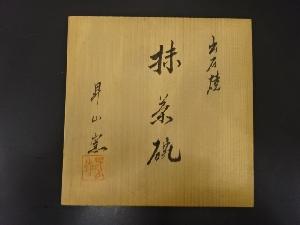 出石焼
抹茶碗
昇山窯